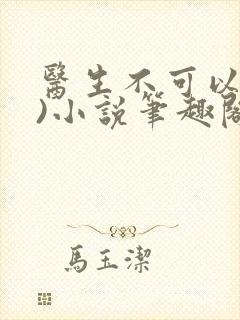 醫生不可以
)小說筆趣閣
馬玉潔